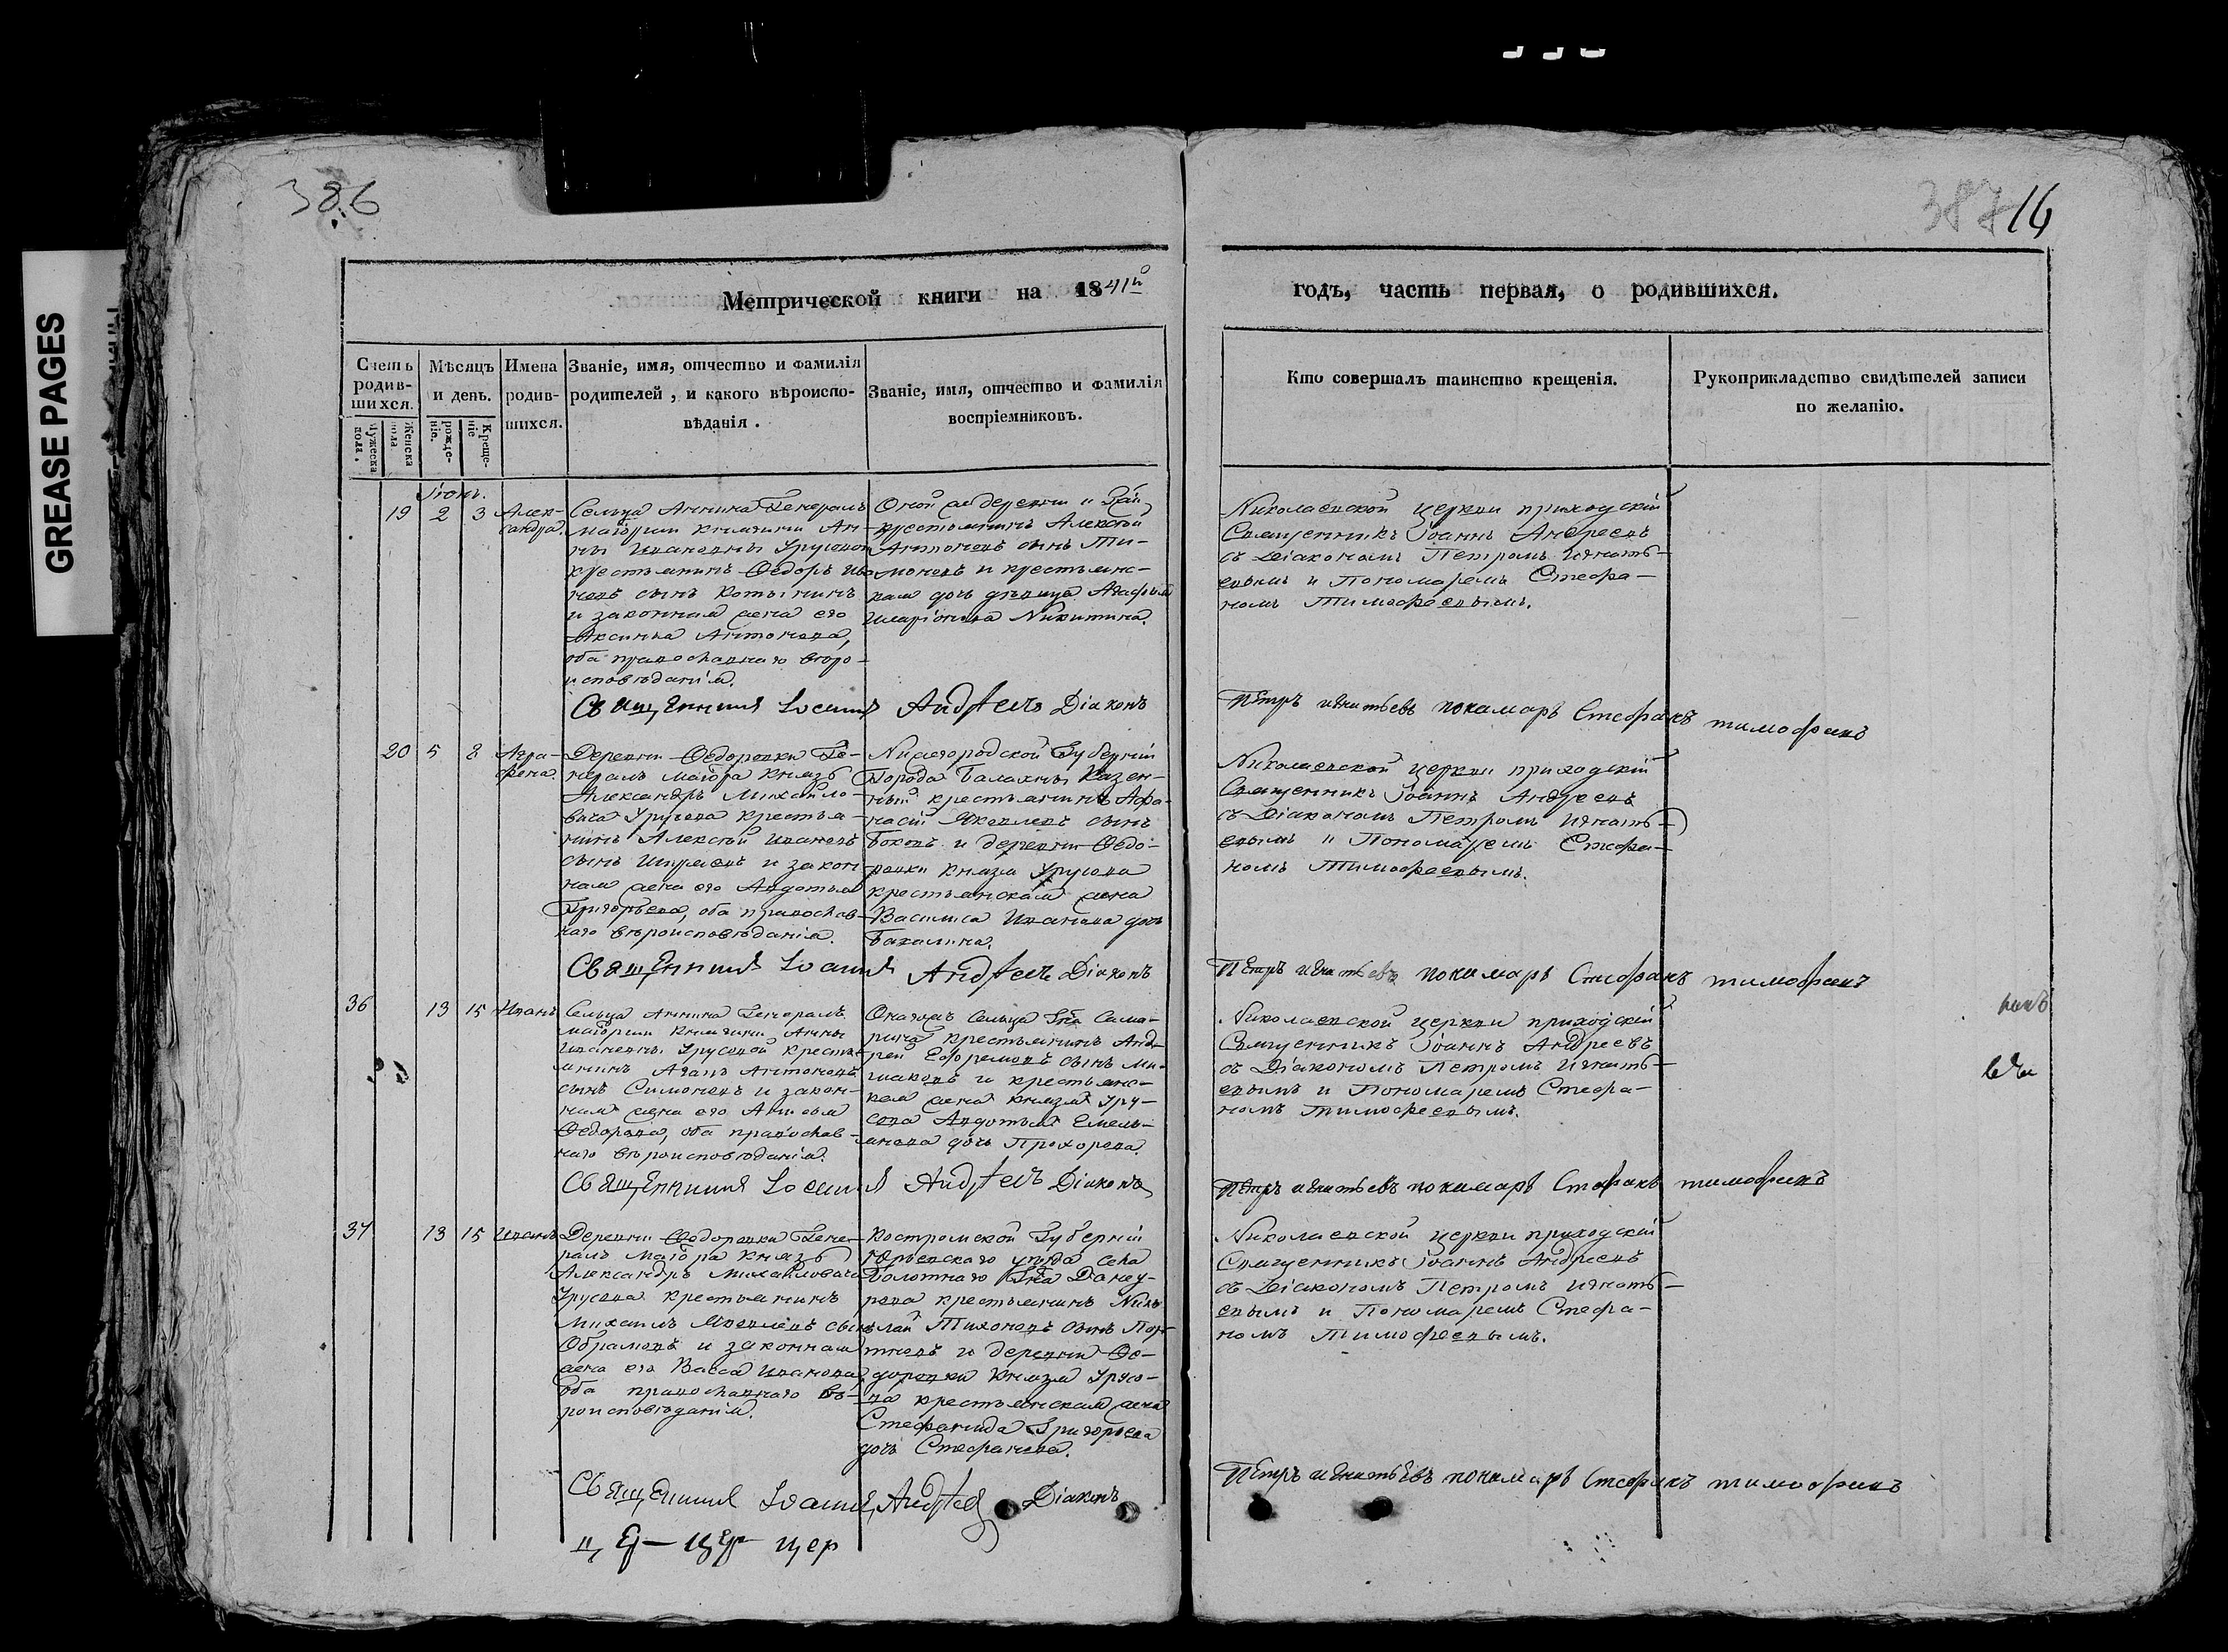 GREASE PAGES
386
387 14
Метрической книги на 1841й
годъ, часть первая, о родившихся.
Счетъ родив-шихся.
Мужеска пола.
Женска пола
Мѣсяцъ и день.
рожде-ніе.
Креще-ніе
Имена родив-шихся.
Званіе, имя, отчество и фамилія
родителей, и какого вѣроиспо-
вѣданія.
Званіе, имя, отчество и фамилія
воспріемниковъ.
Кто совершалъ таинство крещенія.
Рукоприкладство свидѣтелей записи
по желанію.
Іюнь.
19 2 3
Алек-
сандра.
Сельца Аннина Генералъ
маіорши княгини Ан-
ны Ивановны Урусовой
крестьянинъ Ѳедоръ Ива
новъ сынъ
и законная жена его
Аксинья Антонова,
оба православнаго вѣро-
исповѣданія.
Оной же деревни и Г-жи
крестьянинъ Алексѣй
Антоновъ сынъ Ти-
моновъ и крестьянс-
кая дочь дѣвица Агафья
Иларіонова Никитина.
Николаевской церкви приходскій
Священникъ Іоаннъ Андреевъ
съ Діакономъ Петромъ Игнать-
евымъ и Пономаремъ Стефа-
номъ Тимофеевымъ.
Священникъ Іоаннъ Андреевъ Діаконъ
Петръ игнатьевъ понамарь Стефанъ тимофеевъ
20 5 8
Агра-
фена.
Деревни Ѳедоровки Ге-
нералъ маіора Князь
Александръ Михайло-
вича Урусова крестья-
нинъ Алексѣй Ивановъ
сынъ и закон
ная жена его Авдотья
Григорьева, оба православ-
наго вѣроисповѣданія.
Нижегородской Губерніи
Города Балахны Казен-
ный крестьянинъ Афа-
насій Яковлевъ сынъ
Боковъ и деревни Ѳедо-
ровки князя Урусова
крестьянская жена
Василиса Иванова дочь
Бахалина.
Николаевской церкви приходскій
Священникъ Іоаннъ Андреевъ
съ Діакономъ Петромъ Игнать-
евымъ и Пономаремъ Стефа-
номъ Тимофеевымъ.
Священникъ Іоаннъ Андреевъ Діаконъ
Петръ игнатьевъ понамарь Стефанъ тимофеевъ
36 13 15 Иванъ
Сельца Аннина Генералъ
маіорши княгини Анны
Ивановны Урусовой кресть
янинъ Агапъ Антоновъ
сынъ Симоновъ и закон-
ная жена его Анисья
Ѳедорова, оба православ-
наго вѣроисповѣданія.
Онагожъ Сельца Г-на Сама-
рина крестьянинъ Анд-
рей Ефремовъ сынъ Ми-
шаковъ и крестьянс-
кая жена Князя Уру-
сова Авдотья Емель-
янова дочь Прохорова.
Николаевской церкви приходскій
Священникъ Іоаннъ Андреевъ
съ Діакономъ Петромъ Игнать-
евымъ и Пономаремъ Стефа-
номъ Тимофеевымъ.
Священникъ Іоаннъ Андреевъ Діаконъ
Петръ игнатьевъ понамарь Стефанъ тимофеевъ
37 13 15 Иванъ
Деревни Ѳедоровки Гене-
ралъ маіора Князь
Александръ Михайловича
Урусова крестьянинъ
Михаилъ Яковлевъ сынъ
Обрамовъ и законная
жена его Васса Иванова,
оба православнаго вѣ-
роисповѣданія.
Костромской Губерніи
Юрьевскаго уѣзда села
Болотнаго Г-на Доку-
рова крестьянинъ Нико
лай Тихоновъ сынъ Пор-
тновъ и деревни Ѳе-
доровки Князя Урусо-
ва крестьянская жена
Стефанида Григорьева
дочь Стефанова.
Николаевской церкви приходскій
Священникъ Іоаннъ Андреевъ
съ Діакономъ Петромъ Игнать-
евымъ и Пономаремъ Стефа-
номъ Тимофеевымъ.
Священникъ Іоаннъ Андреевъ Діаконъ
Петръ игнатьевъ понамарь Стефанъ тимофеевъ
цер